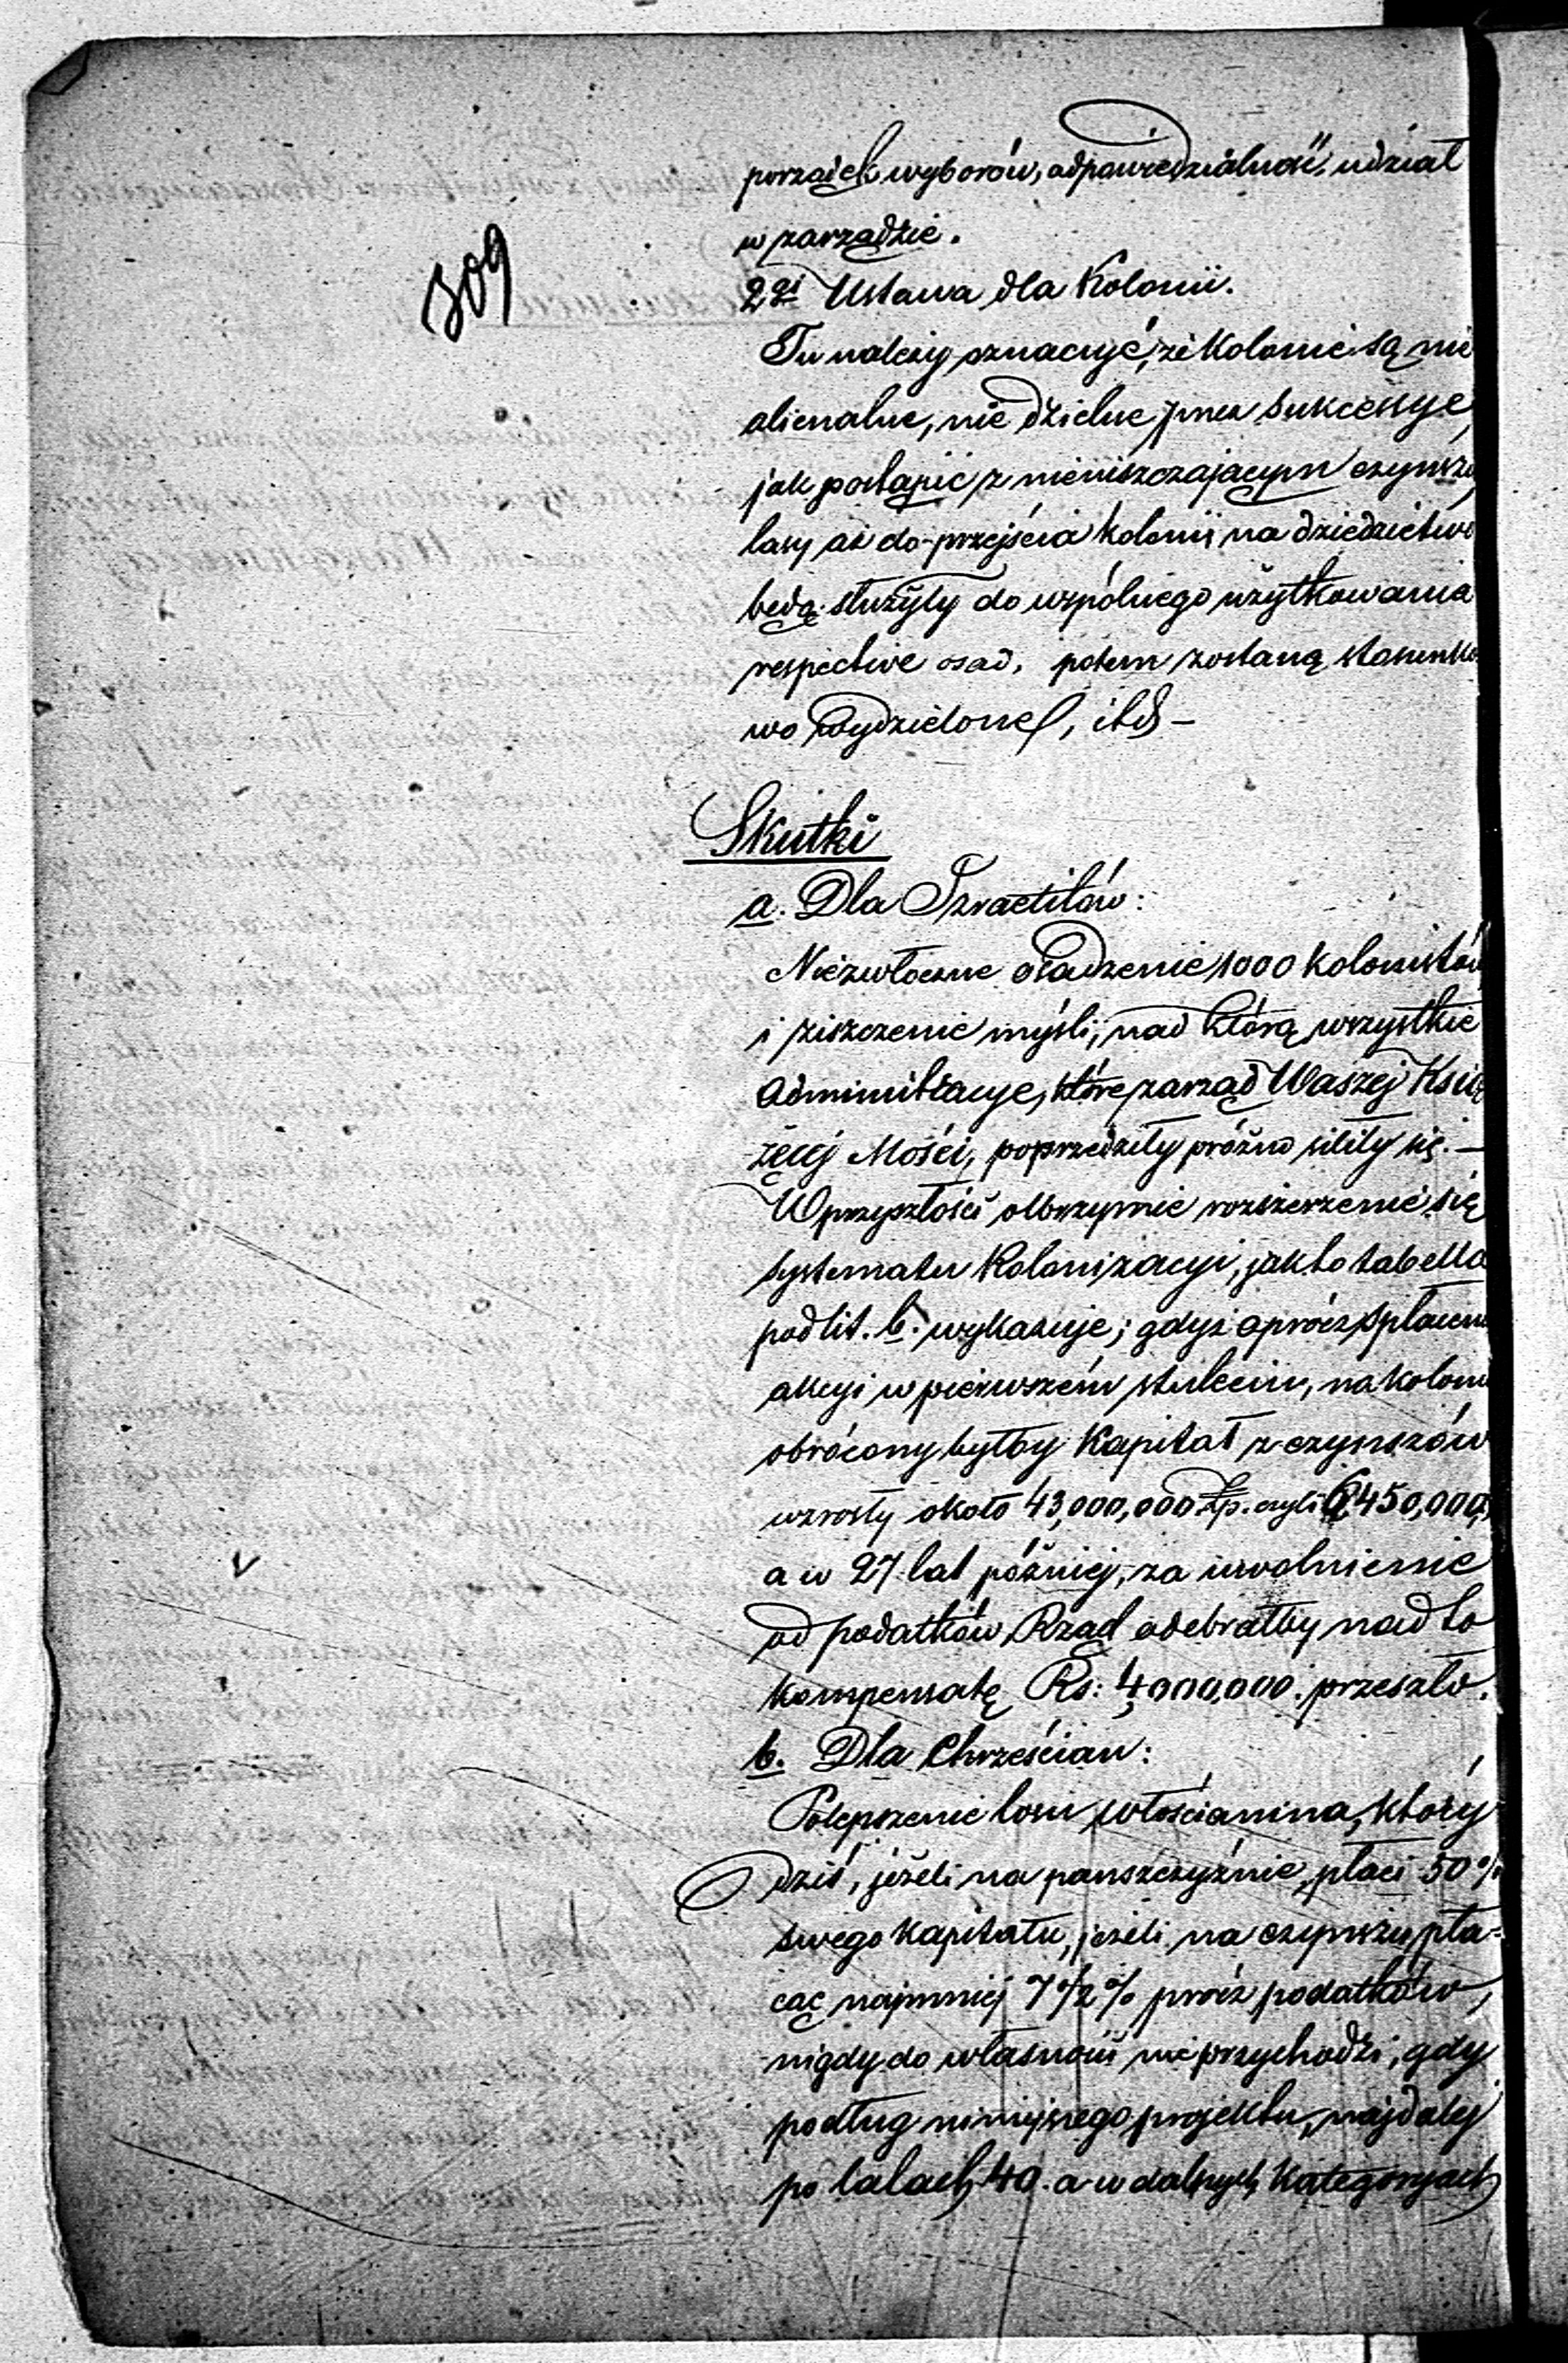 309
porządek wyborów, odpowiedzialność, udział
w zarządzie.
2gi Ustawa dla Kolonii.
Tu należy oznaczyć, że Kolonie są nie
alienalne, nie dzielne przez sukcessye,
jak postąpić z nieuiszczającym czynszu,
lasy aż do przejścia kolonij na dziedzictwo
będą służyły do wspólnego użytkowania
respective osad, potem zostaną stosunko
wo wydzielone, itd –
Skutki
a. Dla Izraelitów:
Niezwłoczne osadzenie 1000 kolonistów
i ziszczenie myśli, nad którą wszystkie
Administracye, które zarząd Waszej Ksią
żęcéj Mości, poprzedziły próżno siliły się. –
W przyszłości olbrzymie rozszerzenie się
systematu Kolonizacyi, jak to tabella
pod lit. b. wykazuje; gdyż oprócz spłacenia
akcyi w pierwszém stuleciu, na kolonie
obrócony byłby Kapitał z czynszów
wzrosły około 43,000,000 Złp. czyli 6,450,000,
a w 27 lat później, za uwolnienie
od podatków Rząd odebrałby nadto
kompensatę Rs: 4,000,000. przeszło.
b. Dla Chrześcian:
Polepszenie losu włościanina, który
dziś, jeżeli na pańszczyźnie, płaci 50%
swego kapitału, jeżeli na czynszu, pła-
cąc najmniej 7 1/2 % prócz podatków,
nigdy do własności nie przychodzi, gdy
podług niniejszego projektu, najdalej
po latach 40. a w dalszych Kategoryach